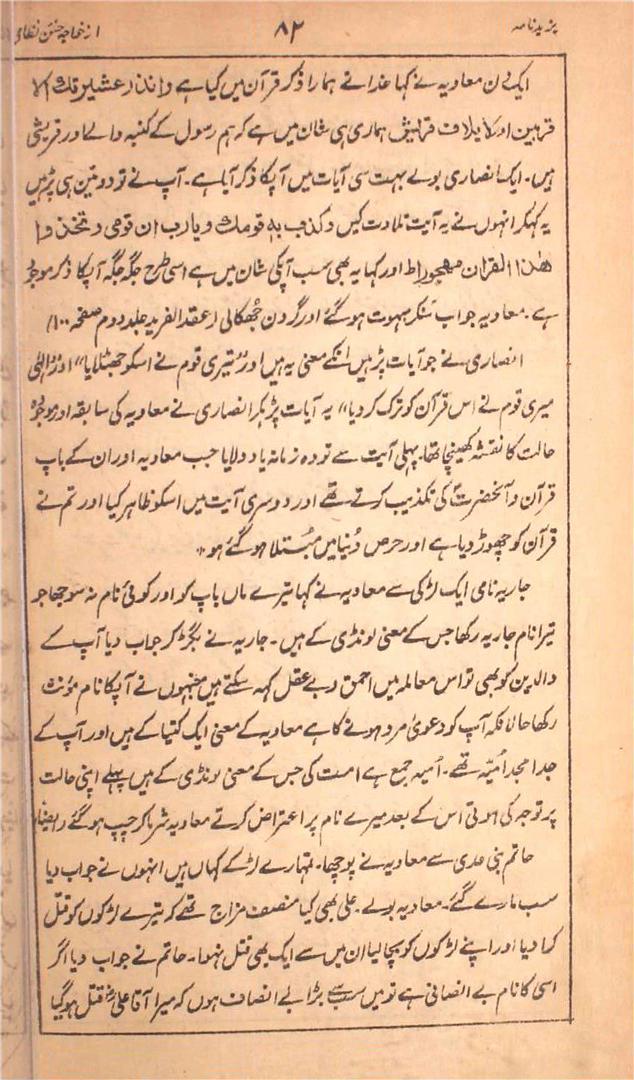 یزید نامہ ۸۲ از خواجہ حسن نظامی
ایک دن معاویہ نے کہا خدا نے ہمارا ذکر قرآن میں کیا ہے وانذر عشیرتک الا
قربین اور لایلاف قریش ہماری ہی شان میں ہے کہ ہم رسول کے کنبہ والے اور قریشی
ہیں۔ ایک انصاری بولے بہت سی آیات میں آپکا ذکر آیا ہے۔ آپ نے تو دو تین ہی پڑہیں
یہ کہکر انہوں نے یہ آیت تلاوت کیں وکذب بہ قومک و یارب ان قومی وتخذوا
ھذا القران مھجورا ط اور کہا یہ بھی سب آپکی شان میں ہے اسی طرح جگہ جگہ آپکا ذکر موجود
ہے۔ معاویہ جواب سنکر مبہوت ہوگئے اور گردن جُھکالی (عقد الفرید جلد دوم صفحہ ۱۰۰)
انصاری نے جو آیات پڑہیں انکے معنی یہ ہیں اور "تیری قوم نے اسکو جھٹلایا" اور "الٰہی
میری قوم نے اس قرآن کو ترک کردیا" یہ آیات پڑہکر انصاری نے معاویہ کی سابقہ اور موجودہ
حالت کا نقشہ کھینچا تھا۔ پہلی آیت سے تو وہ زمانہ یاد دلایا جب معاویہ اور ان کے باپ
قرآن و آنحضرتؐ کی تکذیب کرتے تھے اور دوسری آیت میں اسکو ظاہر کیا اور تم نے
قرآن کو چھوڑ دیا ہے اور حرص دُنیا میں مُبتلا ہوگئے ہو۔
جاریہ نامی ایک لڑکی سے معاویہ نے کہا تیرے ماں باپ کو اور کوئی نام نہ سوجھا جو
تیرا نام جاریہ رکھا جس کے معنی لونڈی کے ہیں۔ جاریہ نے بگڑ کر جواب دیا آپ کے
والدین کو بھی تو اس معاملہ میں احمق و بے عقل کہہ سکتے ہیں جنہوں نے آپکا نام مؤنث
رکھا حالانکہ آپ کو دعویٰ مرد ہونے کا ہے معاویہ کے معنی ایک کتیا کے ہیں اور آپ کے
جد امجد اُمیّہ تھے۔ اُمیہ جمع ہے امت کی جس کے معنی لونڈی کے ہیں پہلے اپنی حالت
پر توجہ کی ہوتی اس کے بعد میرے نام پر اعتراض کرتے معاویہ شرما کر چپ ہوگئے (ایضاً)
حاتم بنی عدی سے معاویہ نے پوچھا۔ تمہارے لڑکے کہاں ہیں انہوں نے جواب دیا
سب مارے گئے۔ معاویہ بولے۔ علی بھی کیا منصف مزاج تھے کہ تیرے لڑکوں کو قتل
کرا دیا اور اپنے لڑکوں کو بچا لیا ان میں سے ایک بھی قتل نہوا۔ حاتم نے جواب دیا اگر
اسی کا نام بے انصافی ہے تو میں سب سے بڑا بے انصاف ہوں کہ میرا آقا علیؓ قتل ہوگیا